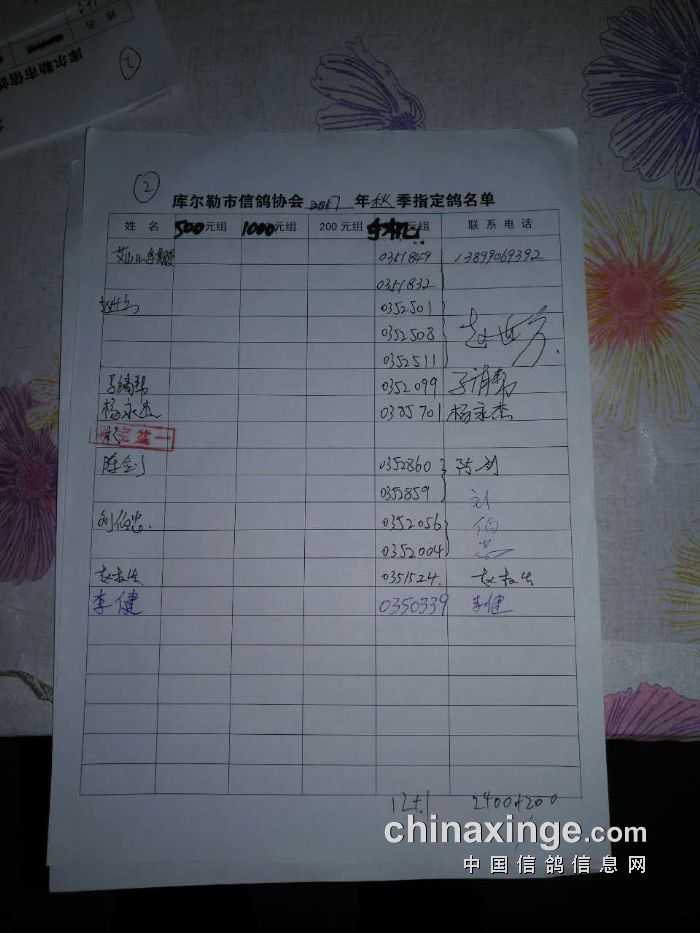 ②
库尔勒市信鸽协会 2017 年 秋 季指定鸽名单
姓 名 500元组 1000元组 200元组 手机 元组 联系电话
0351849 13899069392
0351832
0352501
0352508
0352511
0352099
杨永杰 0385701 杨永杰
陈剑 0352860 陈剑
0352859
刘伯忠 0352056 刘伯忠
0352004
赵 0351524 赵
李健 0350339 李健
12+1 2400+200
chinaxinge.com
中国信鸽信息网
库尔勒市信鸽